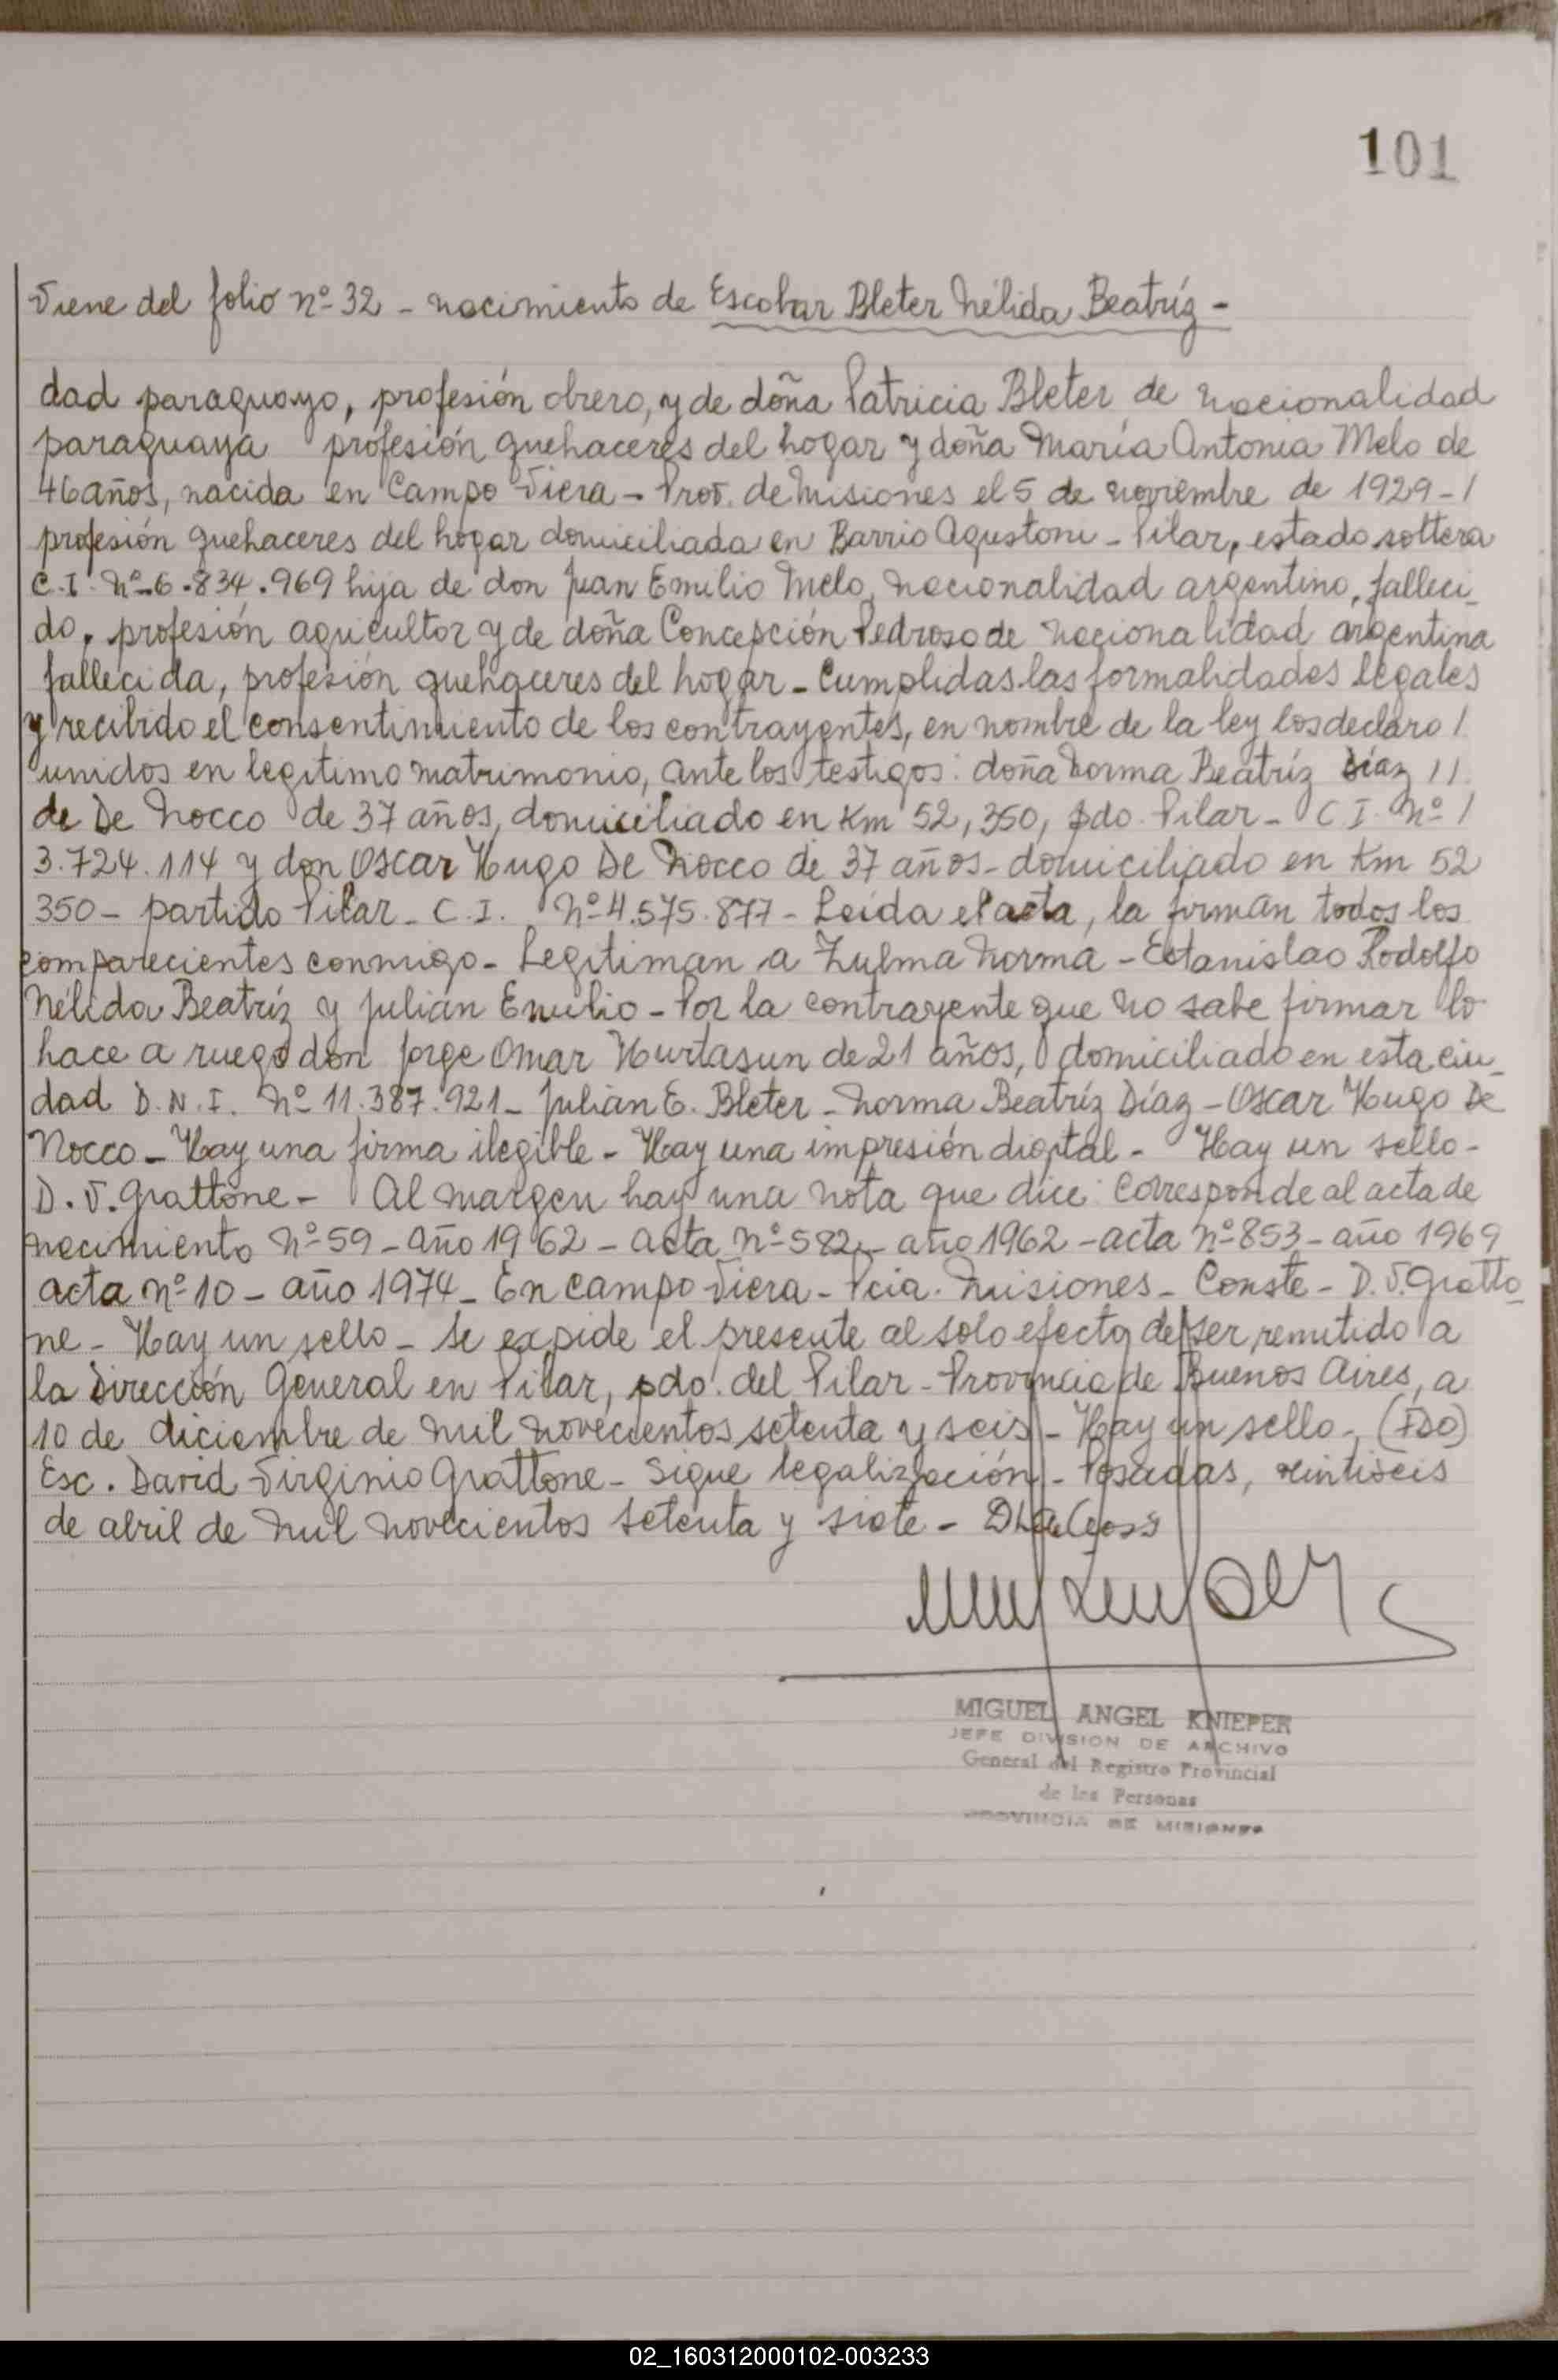 101
Viene del folio nº 32 - nacimiento de Escobar Bleter Nélida Beatríz -
dad paraguayo, profesión obrero, y de doña Patricia Bleter de nacionalidad
paraguaya profesión quehaceres del hogar y doña María Antonia Melo de
46 años, nacida en Campo Viera - Prov. de Misiones el 5 de noviembre de 1929 - /
profesión quehaceres del hogar domiciliada en Barrio Agustoni - Pilar, estado soltera
C.I. Nº 6.834.969 hija de don Juan Emilio Melo, nacionalidad argentino, falleci_
do, profesión agricultor y de doña Concepción Pedroso de nacionalidad argentina
fallecida, profesión quehaceres del hogar - Cumplidas las formalidades legales
y recibido el consentimiento de los contrayentes, en nombre de la ley los declaro /
unidos en legítimo matrimonio, ante los testigos: doña Norma Beatríz Díaz //
de De Nocco de 37 años, domiciliado en Km 52,350, pdo. Pilar - C.I. Nº /
3.724.114 y don Oscar Hugo De Nocco de 37 años - domiciliado en Km 52
350 - partido Pilar - C.I. Nº 4.575.877 - Leída el acta, la firman todos los
comparecientes conmigo - Legitiman a Zulma Norma - Estanislao Rodolfo
Nélida Beatríz y Julián Emilio - Por la contrayente que no sabe firmar lo
hace a ruego don Jorge Omar Hurtasun de 21 años, domiciliado en esta ciu_
dad D.N.I. Nº 11.387.921 - Julián E. Bleter - Norma Beatríz Díaz - Oscar Hugo De
Nocco - Hay una firma ilegible - Hay una impresión digital - Hay un sello -
D. V. Grattone - Al margen hay una nota que dice: Corresponde al acta de
nacimiento Nº 59 - año 1962 - acta Nº 582 - año 1962 - acta Nº 853 - año 1969
acta Nº 10 - año 1974 - En Campo Viera - Pcia. Misiones - Conste - D. V. Gratto_
ne - Hay un sello - Se expide el presente al solo efecto de ser remitido a
la Dirección General en Pilar, pdo. del Pilar - Provincia de Buenos Aires, a
10 de diciembre de mil novecientos setenta y seis - Hay un sello - (FDO)
Esc. David Virginio Grattone - Sigue legalización - Posadas, veintiseis
de abril de mil novecientos setenta y siete -
MIGUEL ANGEL KNIEPER
JEFE DIVISION DE ARCHIVO
General del Registro Provincial
de las Personas
PROVINCIA DE MISIONES
02_160312000102-003233